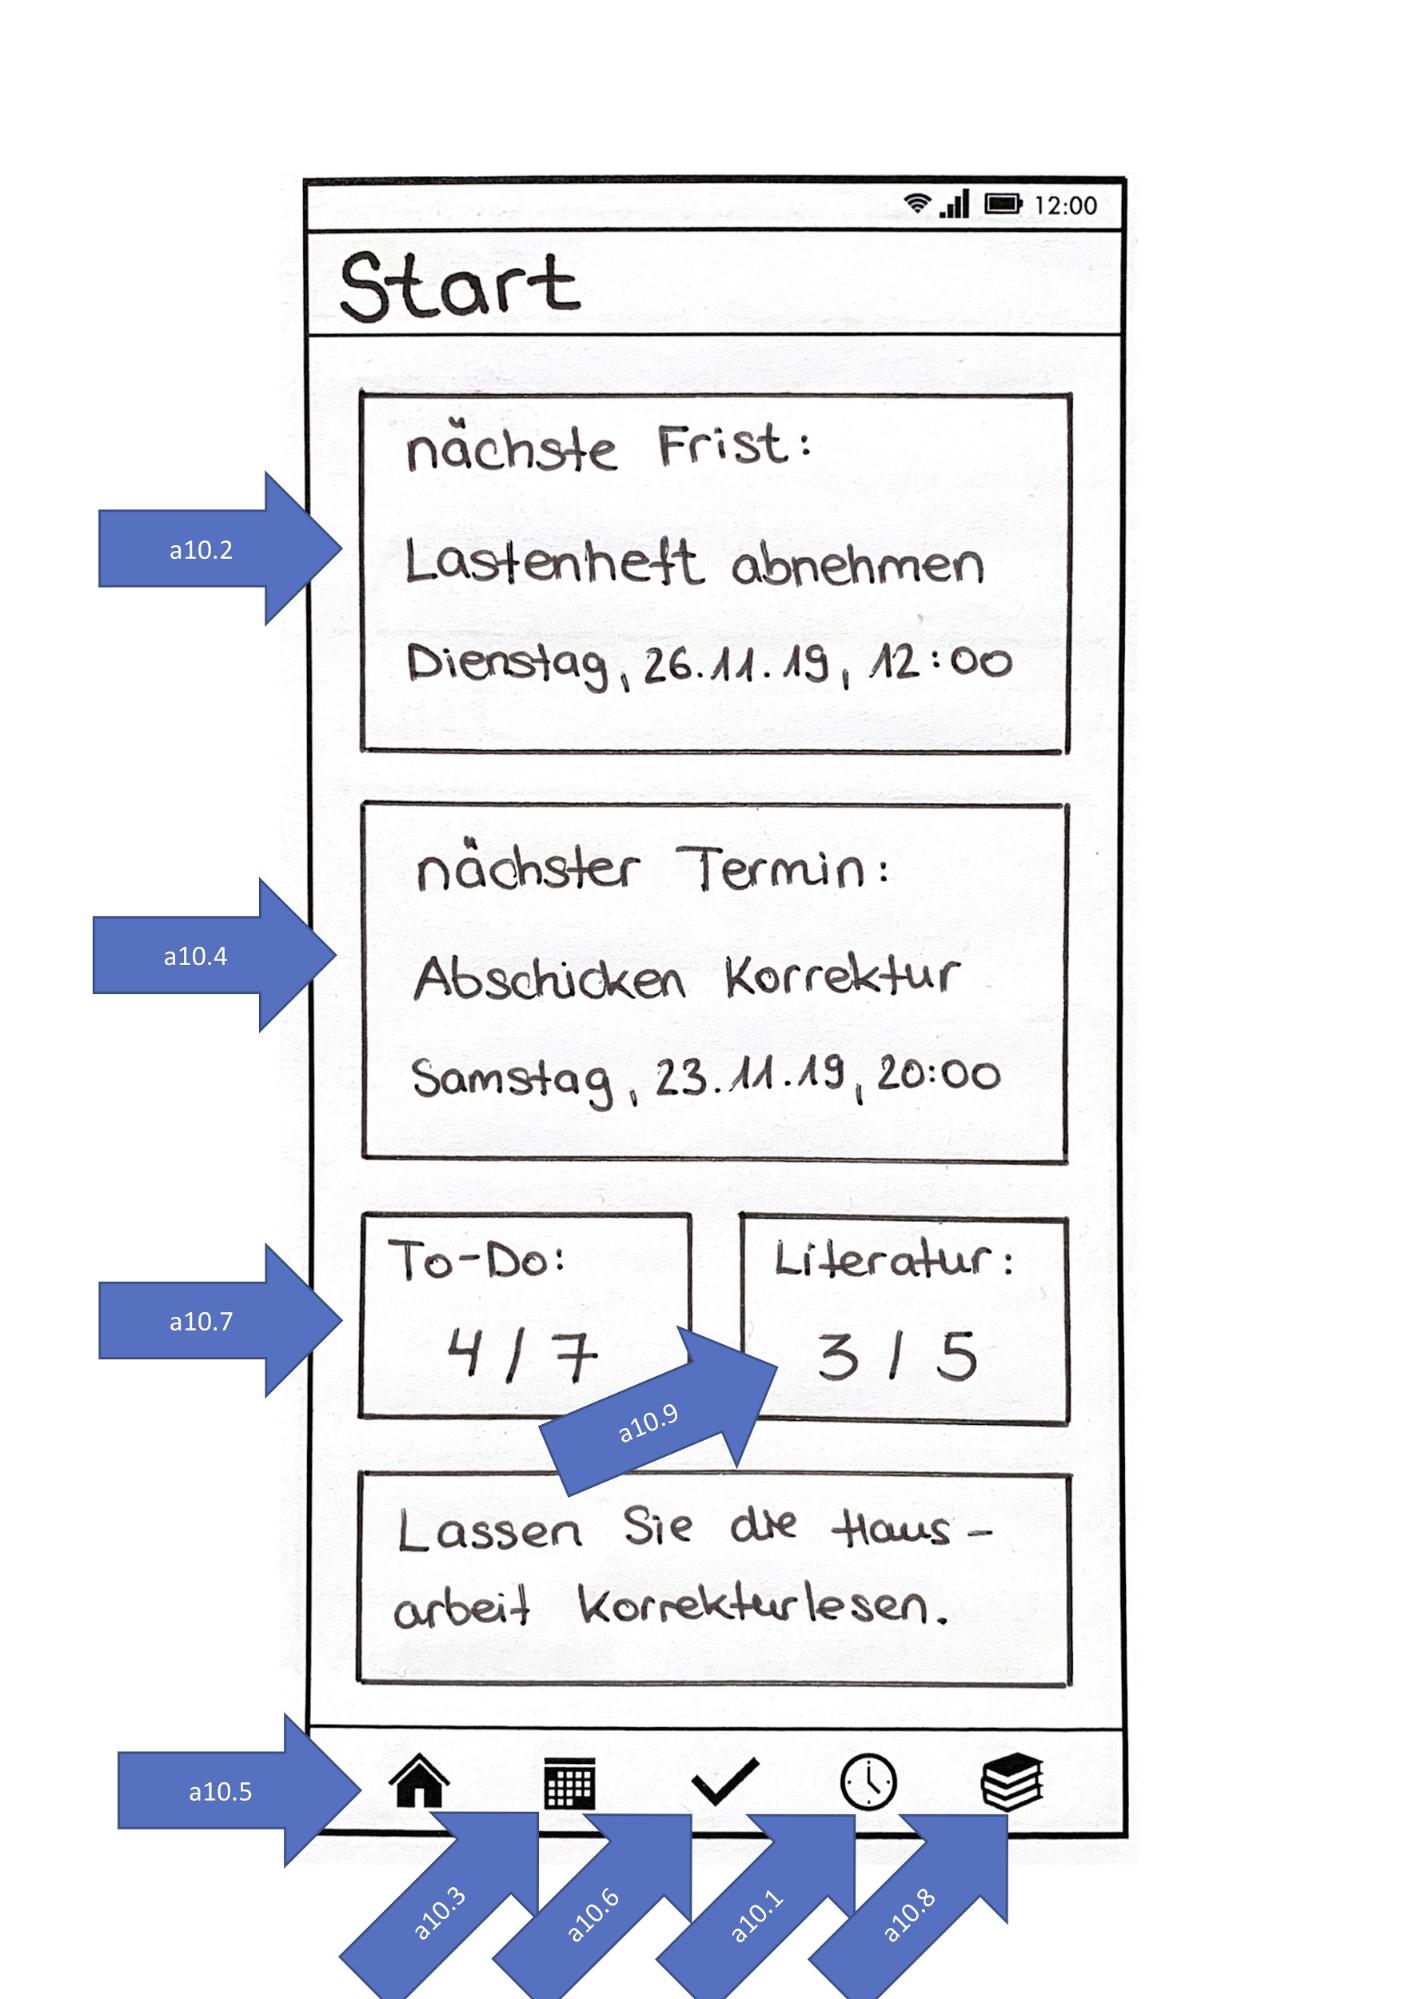 12:00
Start
nächste Frist:
a10.2
Lastenheft abnehmen
Dienstag, 26.11.19, 12:00
nächster Termin:
a10.4
Abschicken Korrektur
Samstag, 23.11.19, 20:00
To-Do:
Literatur:
a10.7
4/7
3/5
a10.9
Lassen Sie die Haus-
arbeit Korrekturlesen.
a10.5
a10.3
a10.6
a10.1
a10.8